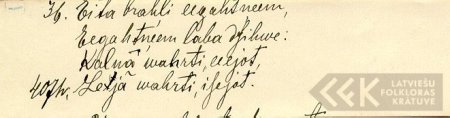 36. Eita brahli eegahtneem,
Eegahtneem laba dsihwe:
Kalnā wahrti, eejot,
40794. Lejjā wahrti, isejot.
LATVIEŠU
FOLKLORAS
KRĀTUVE